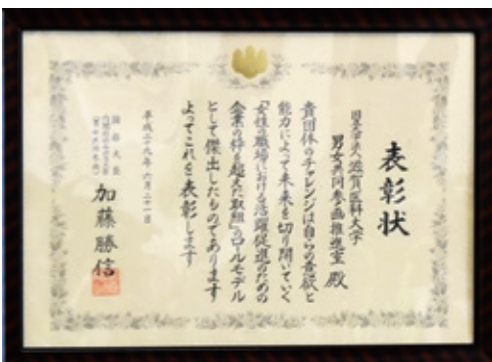 表彰状
国立大学法人滋賀医科大学
男女共同参画推進室 殿
貴団体のチャレンジは自らの意欲と
能力によって未来を切り開いていく
「女性の職場における活躍促進のための
企業の枠を超えた取組」のロールモデル
として傑出したものであります
よってこれを表彰します
平成二十九年 六月二十一日
国務大臣
加藤勝信